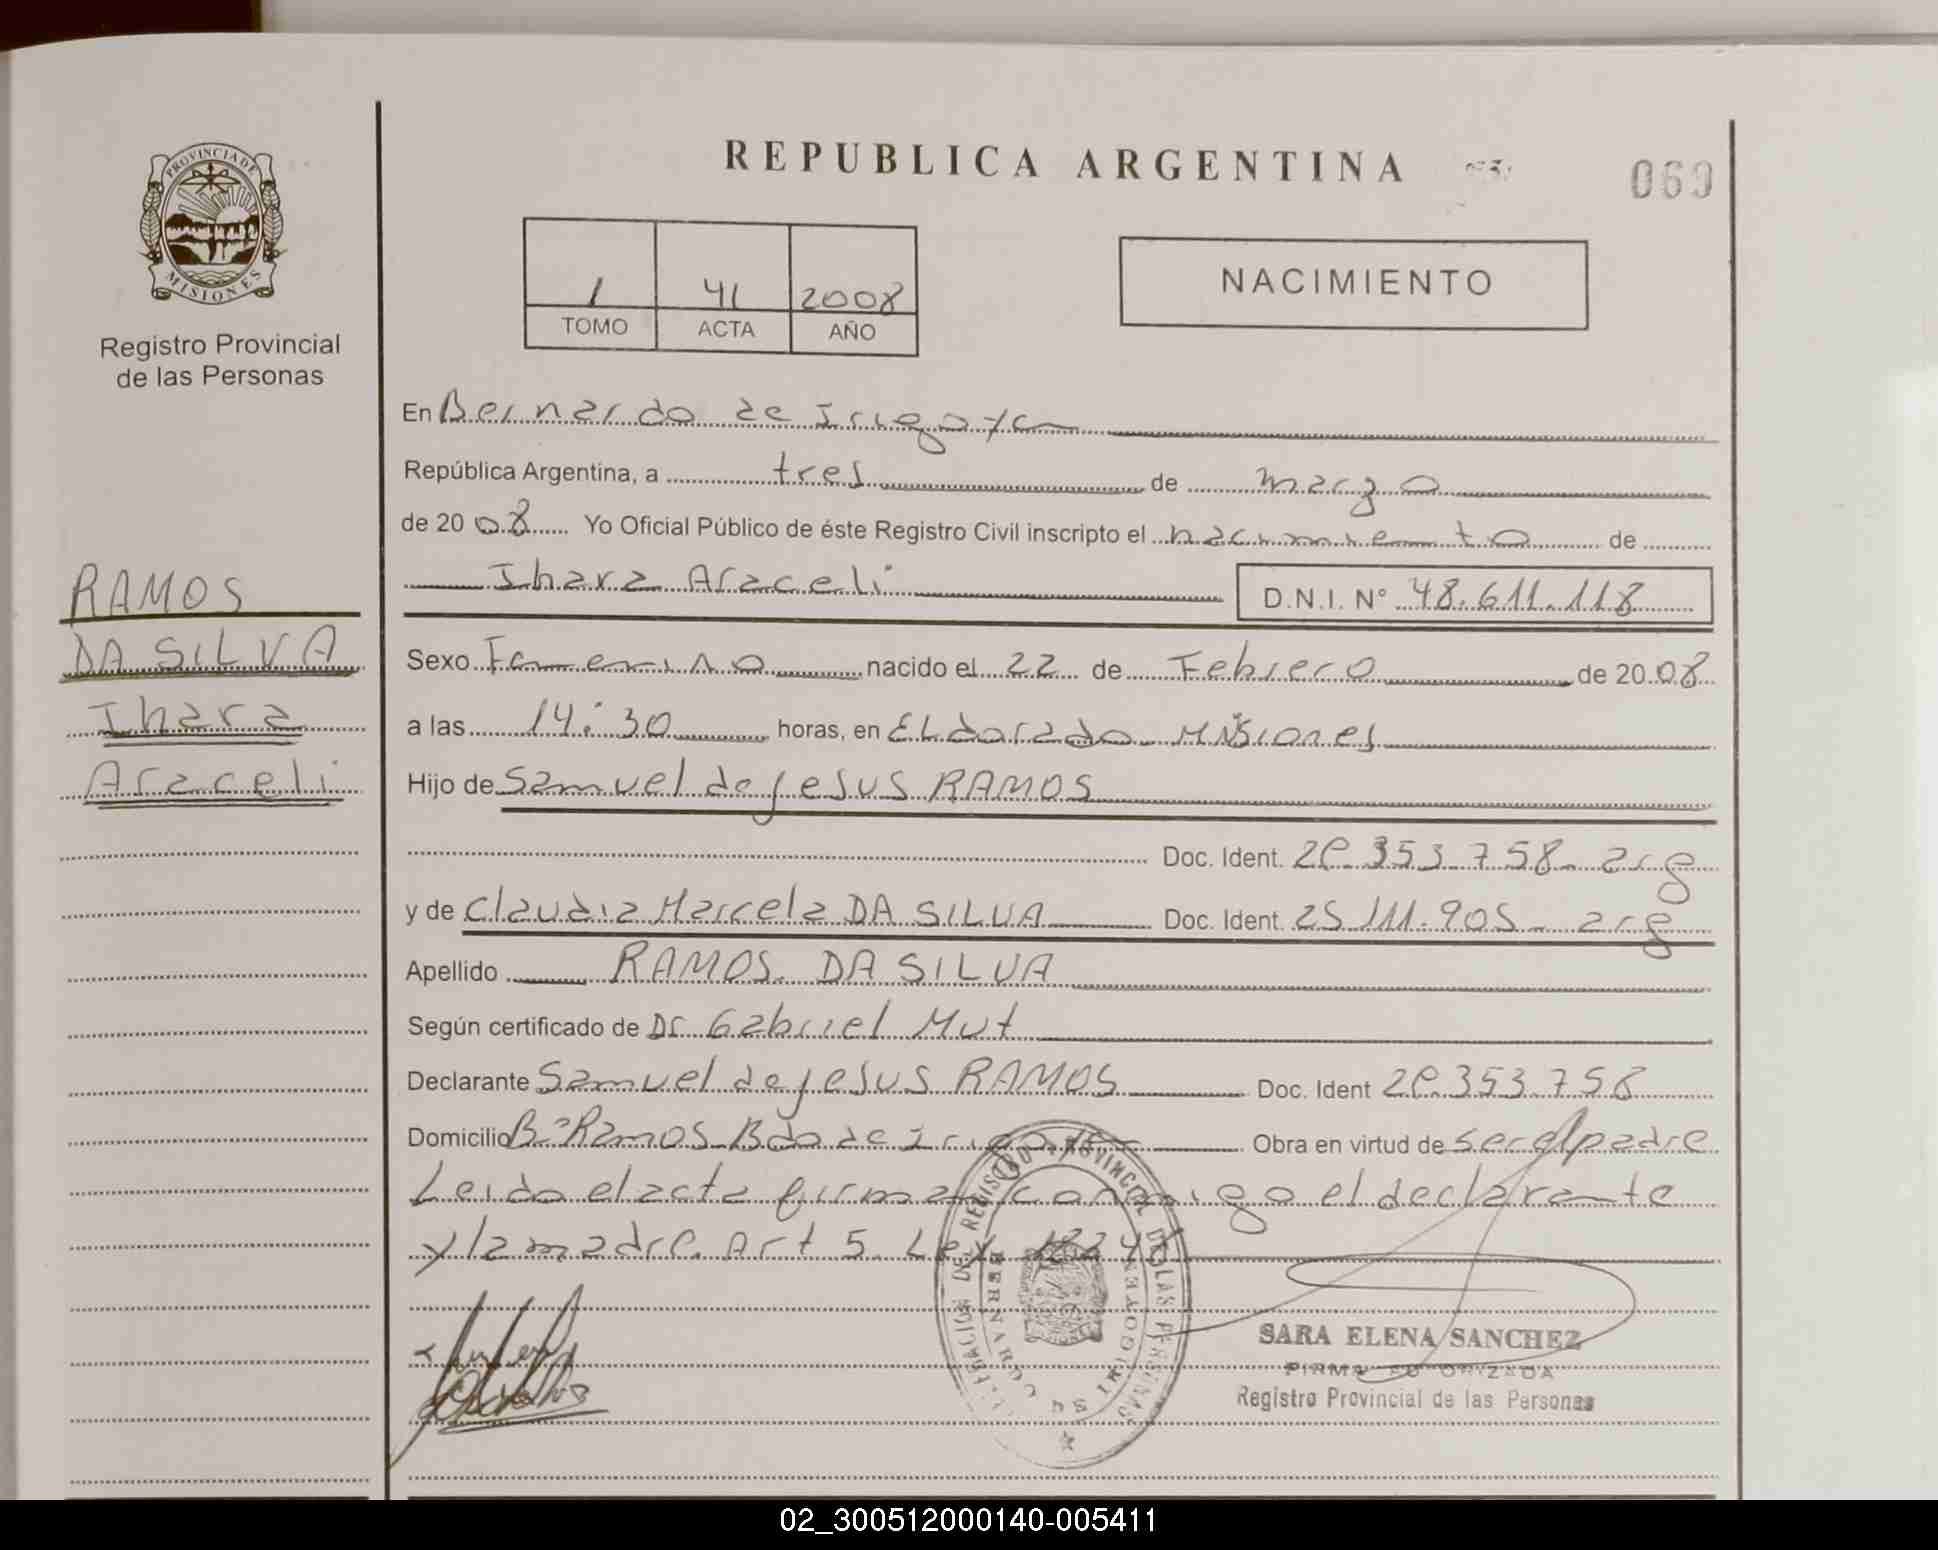 REPUBLICA ARGENTINA
060
PROVINCIA DE
MISIONES
Registro Provincial
de las Personas
1 41 2008
TOMO ACTA AÑO
NACIMIENTO
En Bernardo de Irigoyen
República Argentina, a tres de marzo
de 20 08 Yo Oficial Público de éste Registro Civil inscripto el nacimiento de
Ihara Araceli D.N.I. N° 48.611.118
RAMOS
DA SILVA
Ihara
Araceli
Sexo Femenino nacido el 22 de Febrero de 20 08
a las 14:30 horas, en ELdorado Misiones
Hijo de Samuel de Jesus RAMOS
Doc. Ident. 353.758 - arg
y de Claudia Marcela DA SILVA Doc. Ident. 25.111.905 - arg
Apellido RAMOS DA SILVA
Según certificado de Dr Gabriel Mut
Declarante Samuel de Jesus RAMOS Doc. Ident 353.758
Domicilio B° Ramos Bdo de Irigoyen Obra en virtud de ser el padre
Leido el acta firman conmigo el declarante
y la madre. Art 5. Ley
REGISTRO PROVINCIAL DE LAS PERSONAS
BERNARDO
IRIGOYEN
SARA ELENA SANCHEZ
FIRMA AUTORIZADA
Registro Provincial de las Personas
02_300512000140-005411